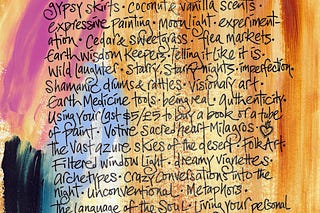 gypsy skirts · coconut & vanilla scents ·
expressive painting · moonlight · experiment
ation · Cedar & sweetgrass · flea markets ·
Earth wisdom keepers · Telling it like it is ·
wild laughter · starry, starry nights · imperfection ·
Shamanic drums & rattles · visionary art ·
Earth Medicine tools · being real · authenticity ·
using your last $5/£5 to buy a book or a tube
of paint · Votive sacred heart Milagros ·
the vast azure skies of the desert · Folk Art ·
Filtered window light · dreamy vignettes ·
archetypes · crazy conversations into the
night · unconventional · Metaphors ·
The language of the Soul · Living your personal